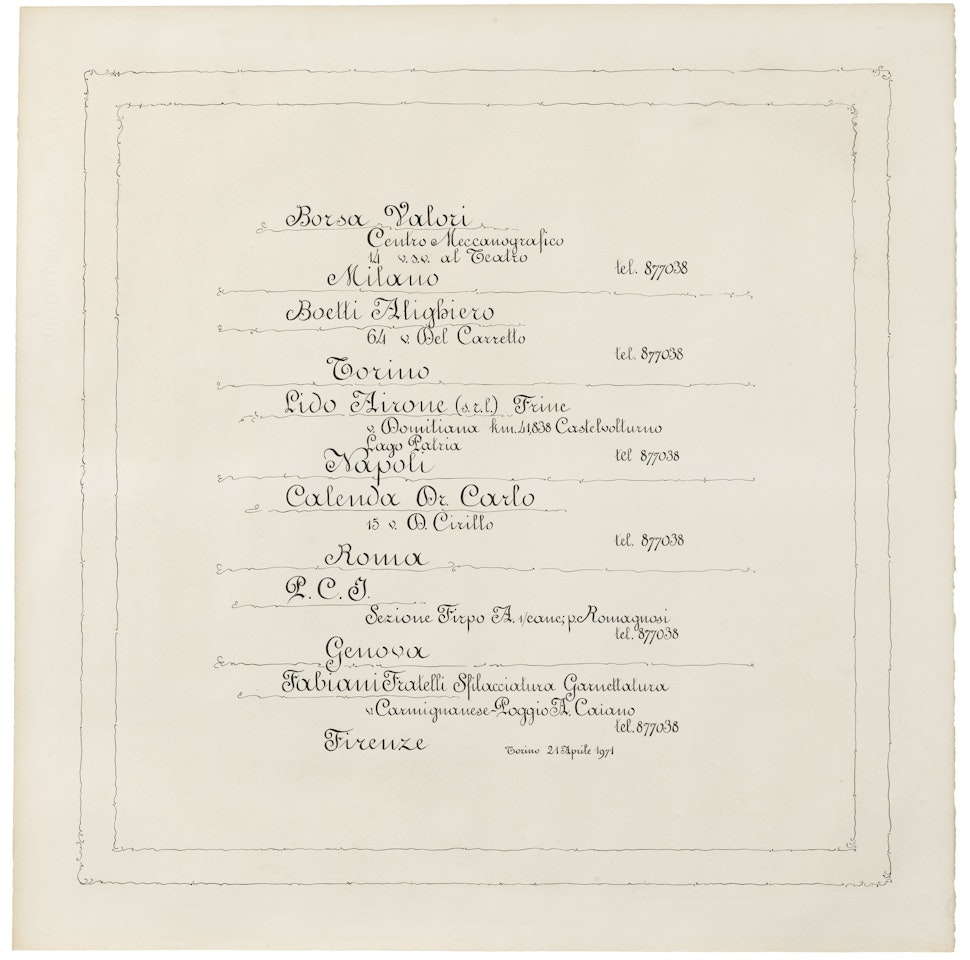 Borsa Valori
Centro Meccanografico
14 v.s.v. al Teatro
Milano tel. 877038
Boetti Alighiero
64 v. Del Carretto
tel. 877038
Torino
Lido Airone (s.r.l.) Frine
v. Domitiana km.41,838 Castelvolturno
Lago Patria
Napoli tel 877038
Calenda Dr. Carlo
15 v. D. Cirillo
tel. 877038
Roma
P.C.I.
Sezione Firpo A. 1/canc; p.Romagnosi
tel. 877038
Genova
Fabiani Fratelli Sfilacciatura Garnettatura
v.Carmignanese-Poggio A. Caiano
tel. 877038
Firenze
Torino 21 Aprile 1971